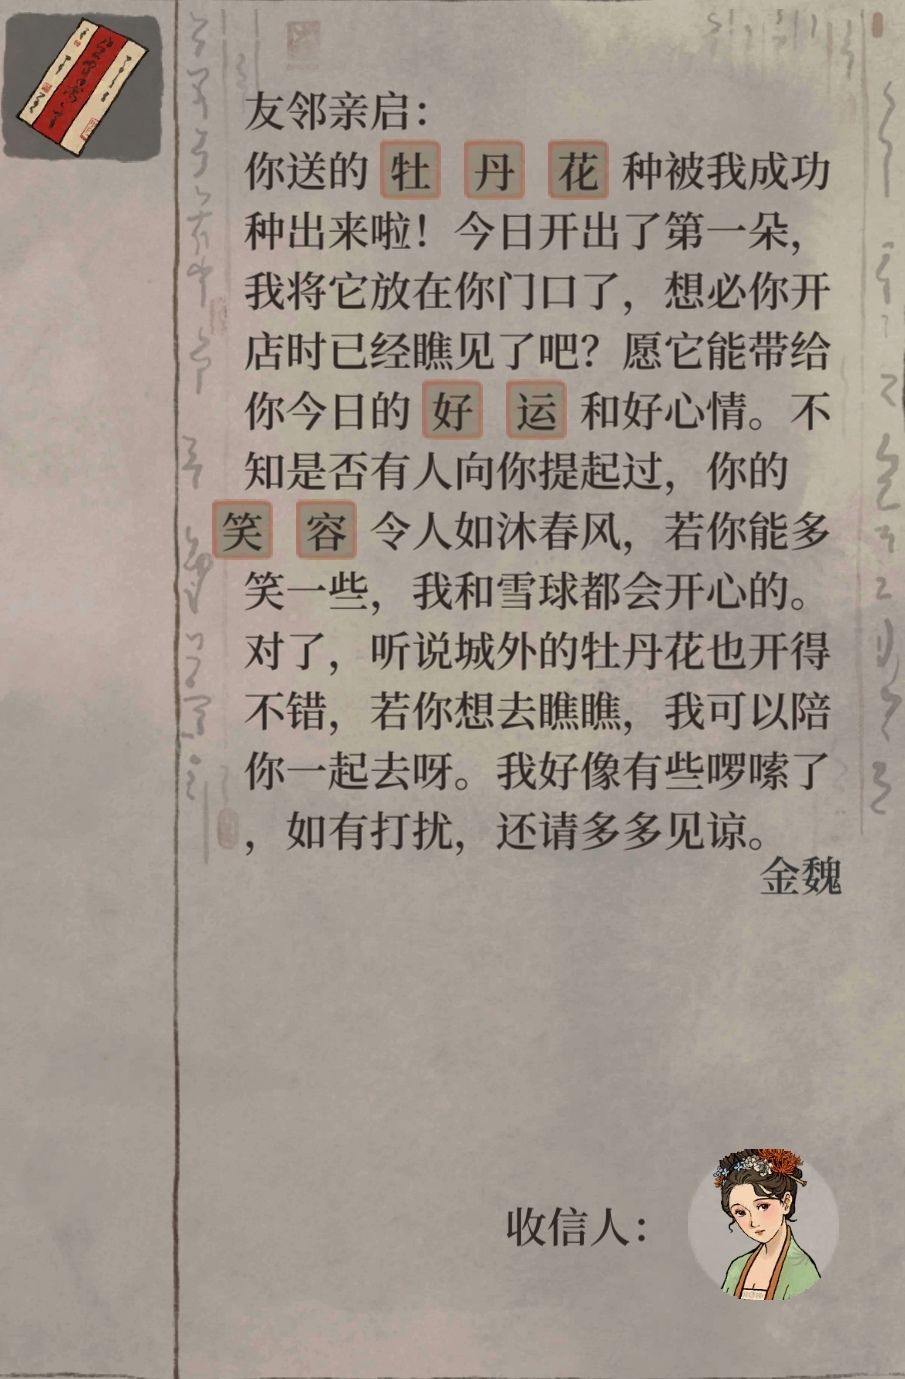 友邻亲启：
你送的牡丹花种被我成功
种出来啦！今日开出了第一朵，
我将它放在你门口了，想必你开
店时已经瞧见了吧？愿它能带给
你今日的好运和好心情。不
知是否有人向你提起过，你的
笑容令人如沐春风，若你能多
笑一些，我和雪球都会开心的。
对了，听说城外的牡丹花也开得
不错，若你想去瞧瞧，我可以陪
你一起去呀。我好像有些啰嗦了
，如有打扰，还请多多见谅。
金魏
收信人：